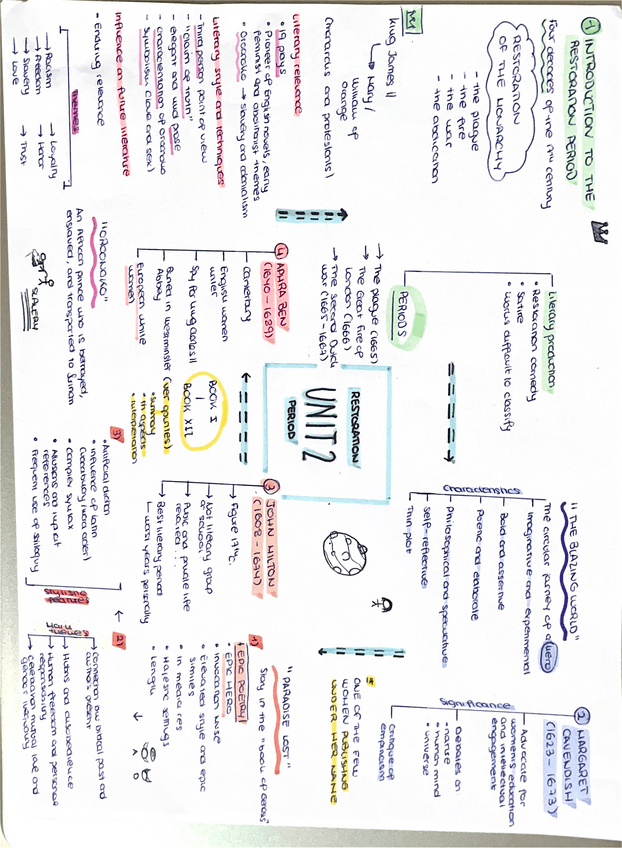 1 INTRODUCTION TO THE
RESTORATION PERIOD
Four decades of the 17th century
RESTORATION
OF THE MONARCHY
- the plague
- the fire
- the war
- the abdication
King James II
→ Mary /
William of
Orange
(Monarcus and protestants)
Literary production
• Restoration comedy
• Satire
• Works difficult to classify
PERIODS
→ The plague (1665)
→ The Great Fire of
London (1666)
→ The Second Dutch
War (1665 - 1667)
RESTORATION
UNIT 2
PERIOD
2 MARGARET
CAVENDISH
(1623 - 1673)
Significance
Advocate for
women's education
and intellectual
engagement
Debates on
• nature
• human mind
• universe
Critique of
empiricism
* ONE OF THE FEW
WOMEN PUBLISHING
UNDER HER NAME
"THE BLAZING WORLD"
The circular journey of a hero
Characteristics
Imaginative and experimental
Bold and assertive
Poetic and elaborate
Philosophical and speculative
Self-reflective
Thin plot
3 JOHN MILTON
(1608 - 1674)
Figure 17th c.
Not literary group
or school
Public and private life
related...
Best literary period
↳ worst years personally
"PARADISE LOST"
Story in the "book of Genesis"
1)
EPIC POETRY
• EPIC HERO
• Invocation Muse
• Elevated style and epic
similes
• In medias res
• Majestic settings
• Length
2)
Main
themes
Connection btw biblical past and
Milton's present
Hubris and disobedience
Human freedom and personal
responsibility
Celebration mutual love and
3)
Stylistic
features
• Artificial diction
• Influence of Latin
Grandiosity (word order)
• Complex syntax
• Allusions and
references
• Frequent use of soliloquy
BOOK I
BOOK XII
(ver apuntes)
• summary
• interpretation
4 APHRA BEN
(1640 - 1689)
Canterbury
English women
writer
Spy for King Charles II
Buried in Westminster
Abbey
European white
women
Literary relevance
• 19 plays
• Pioneer of English novels, early
feminist and abolitionist themes
• Oroonoko → slavery and colonialism
Literary style and techniques
- Third person point of view
- "claim of truth"
- elegant and vivid prose
- characterisation of Oroonoko
- Symbolism (love and sex)
Influence on future literature
- Enduring relevance
Themes
→ Racism
→ Freedom
→ Slavery
→ Love
→ Loyalty
→ Honor
→ Trust
"OROONOKO"
An African prince who is betrayed,
enslaved, and transported to Surinam
SLAVERY